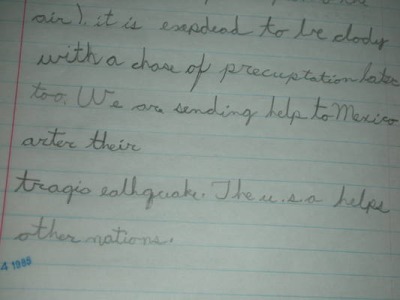 air), it is exspdead to be clody
with a chase of precuptation later
too. We are sending help to Mexico
arter their
tragio eathquake. The u.s.a helps
other nations.
4 1989